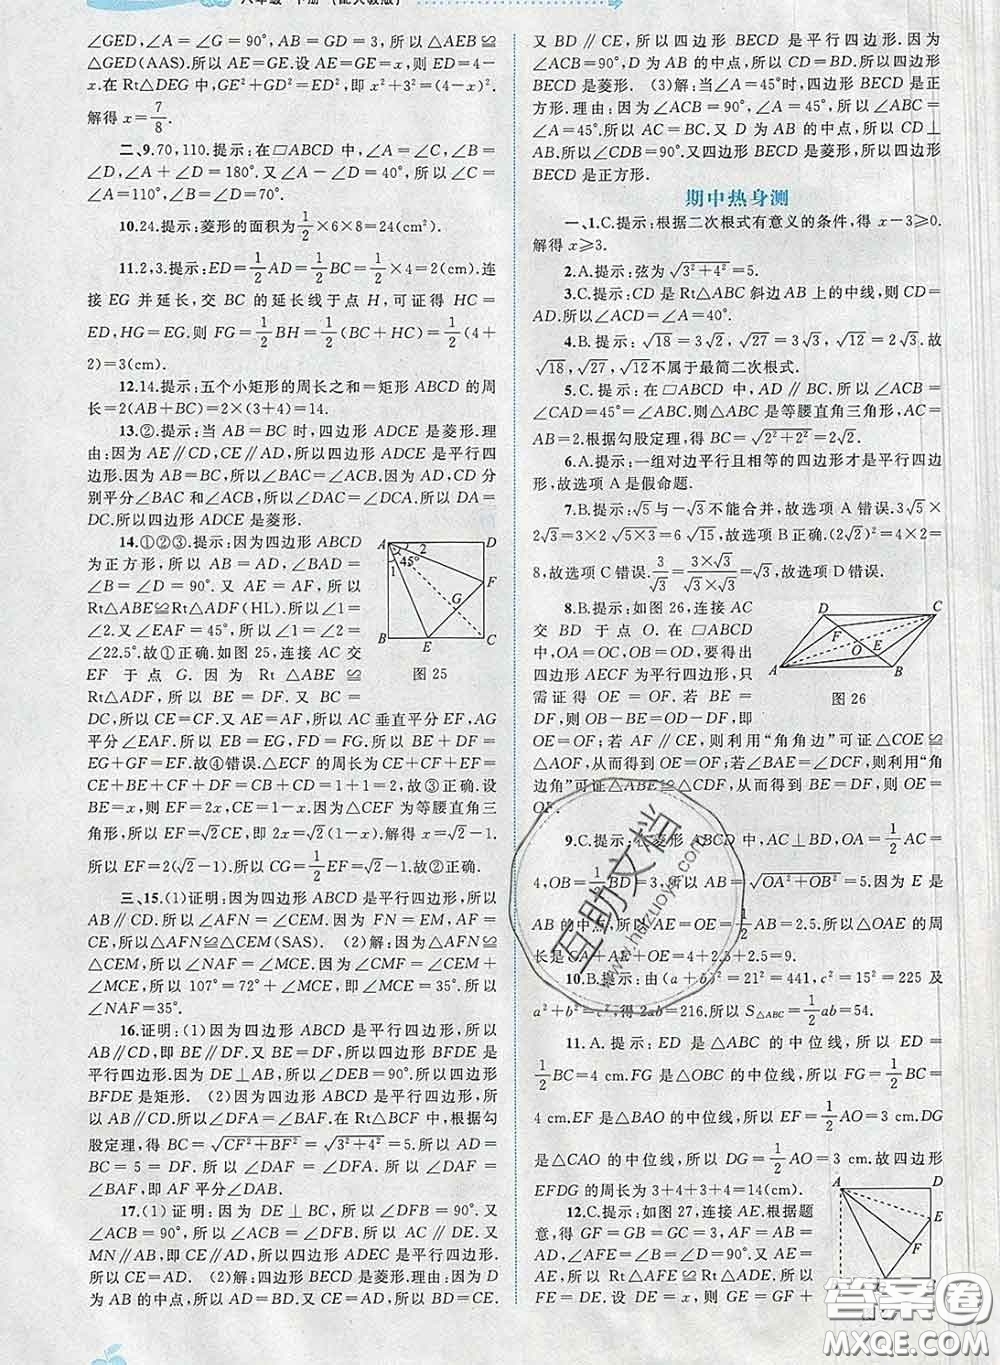 八年级 下册 (配人教版)
∠GED,∠A=∠G=90°,AB=GD=3,所以△AEB≌
△GED(AAS).所以AE=GE.设AE=GE=x,则ED=4-
x.在Rt△DEG中,GE²+GD²=ED²,即x²+3²=(4-x)².
解得x=7/8.
二、9.70,110.提示:在▱ABCD中,∠A=∠C,∠B=
∠D,∠A+∠D=180°.又∠A-∠D=40°,所以∠C=
∠A=110°,∠B=∠D=70°.
10.24.提示:菱形的面积为1/2×6×8=24(cm²).
11.2,3.提示:ED=1/2AD=1/2BC=1/2×4=2(cm).连
接EG并延长,交BC的延长线于点H,可证得HC=
ED,HG=EG.则FG=1/2BH=1/2(BC+HC)=1/2(4+
2)=3(cm).
12.14.提示:五个小矩形的周长之和=矩形ABCD的周
长=2(AB+BC)=2×(3+4)=14.
13.②.提示:当AB=BC时,四边形ADCE是菱形.理
由:因为AE∥CD,CE∥AD,所以四边形ADCE是平行四
边形.因为AB=BC,所以∠BAC=∠ACB.因为AD,CD分
别平分∠BAC和∠ACB,所以∠DAC=∠DCA.所以DA=
DC.所以四边形ADCE是菱形.
14.①②③.提示:因为四边形ABCD
为正方形,所以AB=AD,∠BAD=
∠B=∠D=90°.又AE=AF,所以
Rt△ABE≌Rt△ADF(HL).所以∠1=
∠2.又∠EAF=45°,所以∠1=∠2
=22.5°.故①正确.如图25,连接AC交
EF于点G.因为Rt△ABE≌
Rt△ADF,所以BE=DF.又BC=
DC,所以CE=CF.又AE=AF,所以AC垂直平分EF,AG
平分∠EAF.所以EB=EG,FG=FD.所以BE+DF=
EG+GF=EF.故④错误.△ECF的周长为CE+CF+EF=
CE+BE+CF+DF=CB+CD=1+1=2.故③正确.设
BE=x,则EF=2x,CE=1-x.因为△CEF为等腰直角三
角形,所以EF=√2CE,即2x=√2(1-x).解得x=√2-1.
所以EF=2(√2-1),所以CG=1/2EF=√2-1.故②正确.
A D 2 45° 1 F G B E C
图25
三、15.(1)证明:因为四边形ABCD是平行四边形,所以
AB∥CD.所以∠AFN=∠CEM.因为FN=EM,AF=CE,
所以△AFN≌△CEM(SAS). (2)解:因为△AFN≌
△CEM,所以∠NAF=∠MCE.因为∠CMF=∠CEM+
∠MCE,所以107°=72°+∠MCE.所以∠MCE=35°.所以
∠NAF=35°.
16.证明:(1)因为四边形ABCD是平行四边形,所以
AB∥CD.即BE∥DF.又BE=DF,所以四边形BFDE是
平行四边形.因为DE⊥AB,所以∠DEB=90°.所以四边形
BFDE是矩形. (2)因为四边形ABCD是平行四边形,所
以AB∥CD.所以∠DFA=∠FAB.在Rt△BCF中,根据勾
股定理,得BC=√CF²+BF²=√3²+4²=5.所以AD=
BC=5.所以AD=DF.所以∠DAF=∠DFA.所以∠DAF=
∠FAB,即AF平分∠DAB.
17.(1)证明:因为DE⊥BC,所以∠DFB=90°.又
∠ACB=90°,所以∠ACB=∠DFB.所以AC∥DE.又
MN∥AB,即CE∥AD,所以四边形ADEC是平行四边形.
所以CE=AD. (2)解:四边形BECD是菱形.理由:因为D
为AB的中点,所以AD=BD.又CE=AD,所以BD=CE.
又BD∥CE,所以四边形BECD是平行四边形.因为
∠ACB=90°,D为AB的中点,所以CD=BD.所以四边形
BECD是菱形. (3)解:当∠A=45°时,四边形BECD是正
方形.理由:因为∠ACB=90°,∠A=45°,所以∠ABC=
∠A=45°.所以AC=BC.又D为AB的中点,所以CD⊥
AB.所以∠CDB=90°.又四边形BECD是菱形,所以四边形
BECD是正方形.
期中热身测
一、1.C.提示:根据二次根式有意义的条件,得x-3≥0.
解得x≥3.
2.A.提示:弦为√3²+4²=5.
3.C.提示:CD是Rt△ABC斜边AB上的中线,所以CD=
AD.所以∠ACD=∠A=40°.
4.B.提示:√18=3√2,√27=3√3,√12=2√3.故
√18,√27,√12不属于最简二次根式.
5.C.提示:在▱ABCD中,AD∥BC.所以∠ACB=
∠CAD=45°=∠ABC.则△ABC是等腰直角三角形,AC=
AB=2.根据勾股定理,得BC=√2²+2²=2√2.
6.A.提示:一组对边平行且相等的四边形才是平行四边
形,故选项A是假命题.
7.B.提示:√5与-√3不能合并,故选项A错误.3√5×
2√3=3×2√5×3=6√15,故选项B正确.(2√2)²=4×2=
8,故选项C错误.3/√3=3×√3/√3×√3=√3,故选项D错误.
8.B.提示:如图26,连接AC
交BD于点O.在▱ABCD
中,OA=OC,OB=OD,要得出
四边形AECF为平行四边形,只
需证得OE=OF.若BE=
DF,则OB-BE=OD-DF,即
OE=OF;若AF∥CE,则利用“角角边”可证△COE≌
△AOF,从而得到OE=OF;若∠BAE=∠DCF,则利用“角
边角”可证△ABE≌△CDF,从而得到BE=DF,所以OE=
OF.
D C F O E A B
图26
9.C.提示:在菱形ABCD中,AC⊥BD,OA=1/2AC=
4,OB=1/2BD=3,所以AB=√OA²+OB²=5.因为E是
AB的中点,所以AE=OE=1/2AB=2.5.所以△OAE的周
长是OA+AE+OE=4+2.5+2.5=9.
10.B.提示:由(a+b)²=21²=441,c²=15²=225及
a²+b²=c²,得2ab=216.所以S△ABC=1/2ab=54.
11.A.提示:ED是△ABC的中位线,所以ED=
1/2BC=4 cm.FG是△OBC的中位线,所以FG=1/2BC=
4 cm.EF是△BAO的中位线,所以EF=1/2AO=3 cm.DG
是△CAO的中位线,所以DG=1/2AO=3 cm.故四边形
EFDG的周长为3+4+3+4=14(cm).
12.C.提示:如图27,连接AE.根据题
意,得GF=GB=GC=3,AF=AB=
AD,∠AFE=∠B=∠D=90°.又AE=
AE,所以Rt△AFE≌Rt△ADE,所以
FE=DE.设DE=x,则GE=GF+
A D E F
互助文档
www.huzuoye.com
答案圈
MXQE.COM